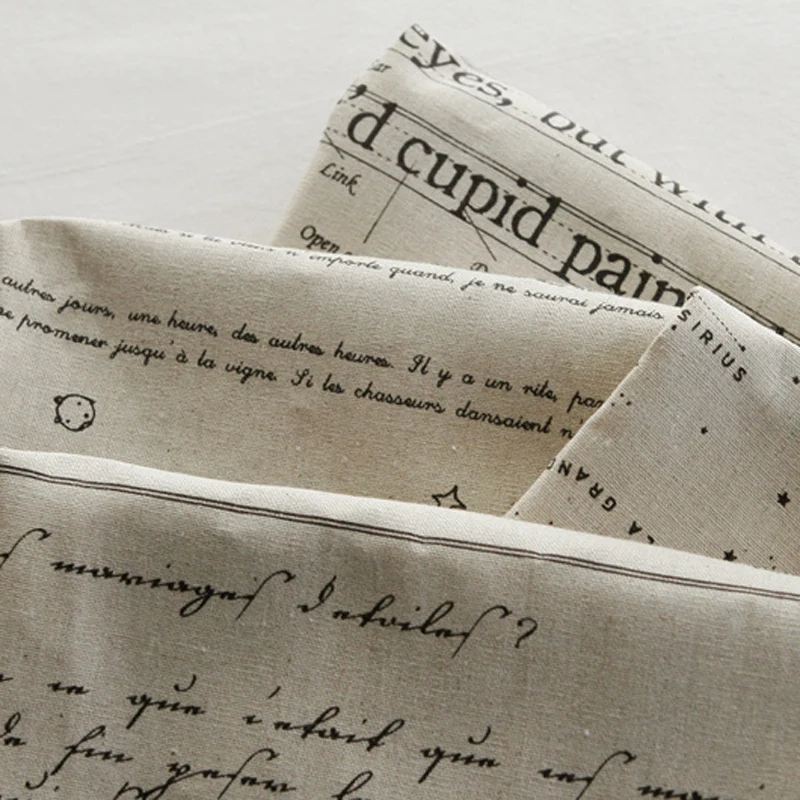 eyes, but with
'd cupid pain
Link
Open
n'importe quand, je ne saurai jamais
autres jours, une heure, des autres heures. Il y a un rite, par
promener jusqu'à la vigne. Si les chasseurs dansaient n'
SIRIUS
LA GRAN
mariages detoiles ?
ce que c'etait que ces
de fin peser